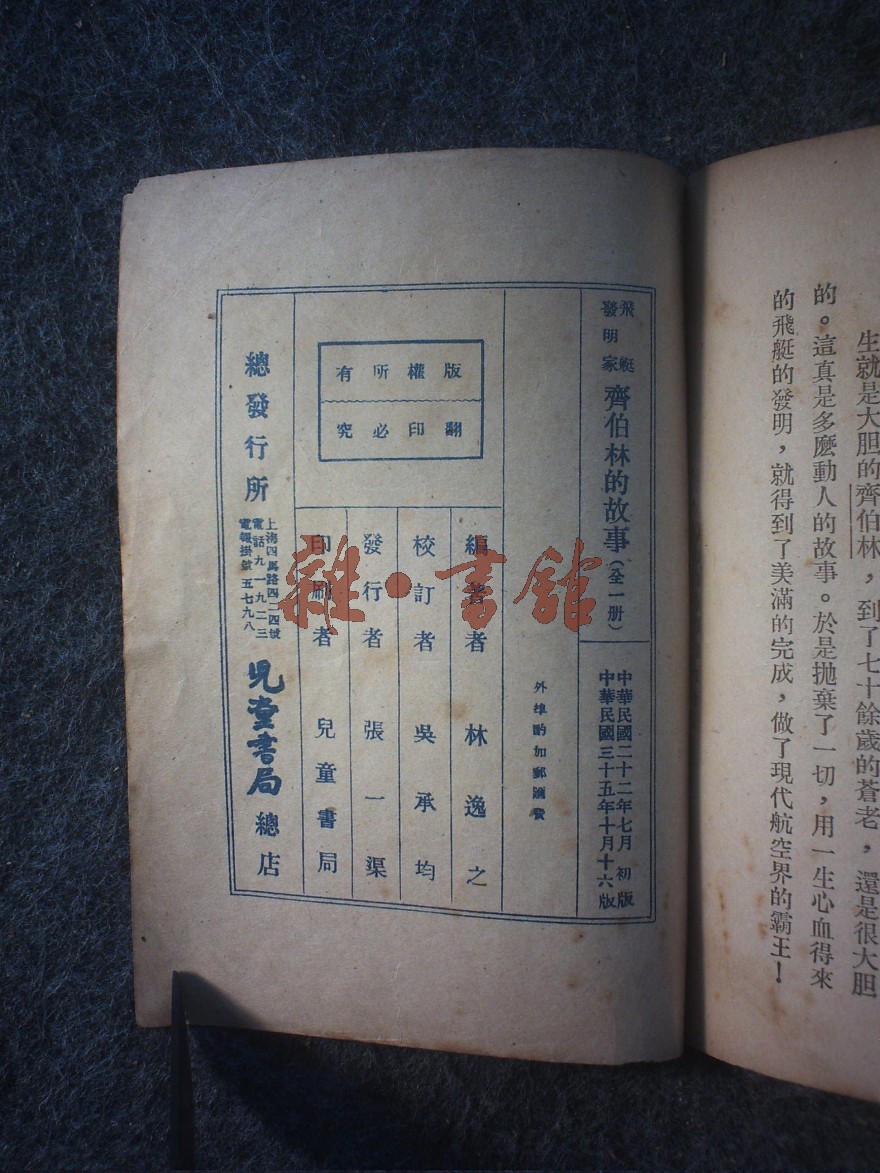 生就是大胆的齊伯林，到了七十餘歲的蒼老，還是很大胆
的。這真是多麽動人的故事。於是拋棄了一切，用一生心血得來
的飛艇的發明，就得到了美滿的完成，做了現代航空界的霸王！
飛艇
發明家
齊伯林的故事（全一册）
中華民國二十二年七月初版
中華民國三十五年十月十六版
外埠酌加郵滙費
版權所有
翻印必究
編著者 林逸之
校訂者 吳承均
發行者 張一渠
印刷者 兒童書局
總發行所
上海四馬路四二四號
電話九一九二三
電報掛號五七九八
兒童書局總店
雜·書館